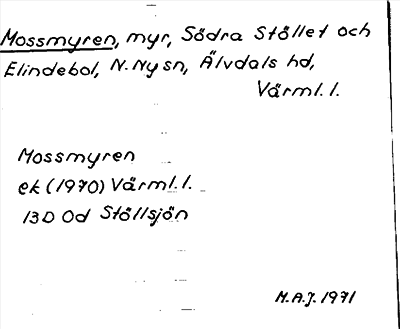 Mossmyren, myr, Södra Stöllet och
Elindebol, N. Ny sn, Älvdals hd,
Värml. l.
Mossmyren
ek (1970) Värml. l.
13D 0d Stöllsjön
M.A.J. 1971